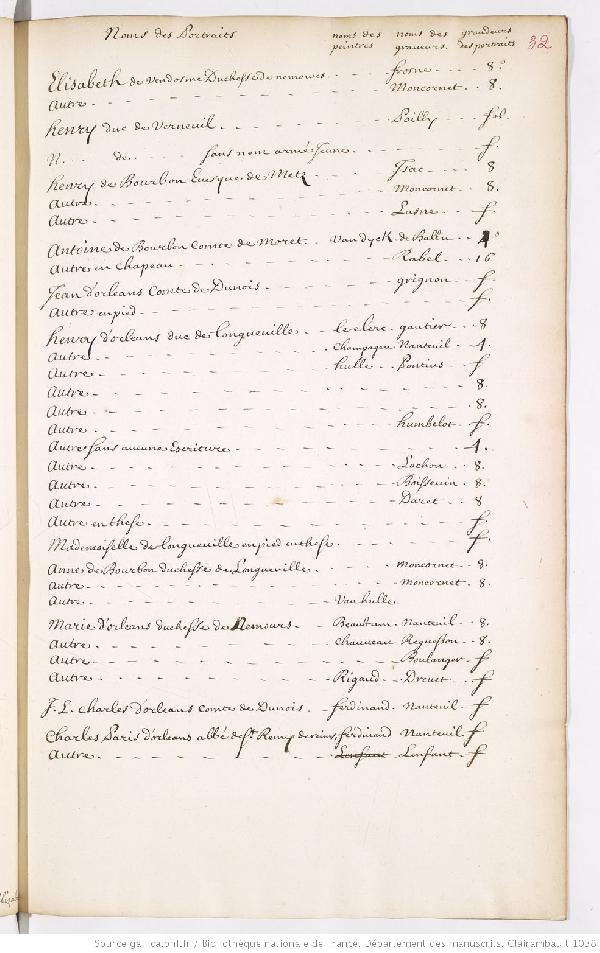 Noms des Portraits noms des peintres noms des graveurs grandeurs des portraits 32
Elisabeth de Vendosme Duchesse de nemours frosne 8°
Autre Moncornet 8.
henry duc de Verneuil Poilly fol.
N. de sans nom armé Jeune f.
henry de Bourbon Evesque de Metz Isac 8
Autre Moncornet 8.
Autre Lasne f.
Antoine de Bourbon Comte de Moret Vandyck de Ballu 4°
Autre en chapeau Rabel 16
Jean d'orleans Comte de Dunois grignon f.
Autre en pied f.
henry d'orleans duc de Longueville le clerc gautier 8
Autre Champagne Nanteuil 4.
Autre hulle Pontius f
Autre 8
Autre 8.
Autre humbelot f
Autre sans aucune Escriture 4.
Autre Lochon 8.
Autre Boissevin 8.
Autre Daret 8
Autre en these f.
Mademoiselle de longueville en pied en these f
Anne de Bourbon duchesse de Longueville Moncornet 8.
Autre Moncornet 8.
Autre Van hulle.
Marie d'orleans duchesse de Nemours Beaubrun Nanteuil 8.
Autre Chauveau Regnesson 8.
Autre Boulanger f
Autre Rigaud Drevet f
J. L. Charles d'orleans comte de Dunois ferdinand Nanteuil f
Charles Paris d'orleans abbé de St Remy de reims ferdinand Nanteuil f
Autre Lenfant Lenfant f
Source gallica.bnf.fr / Bibliothèque nationale de France. Département des manuscrits. Clairambault 1038